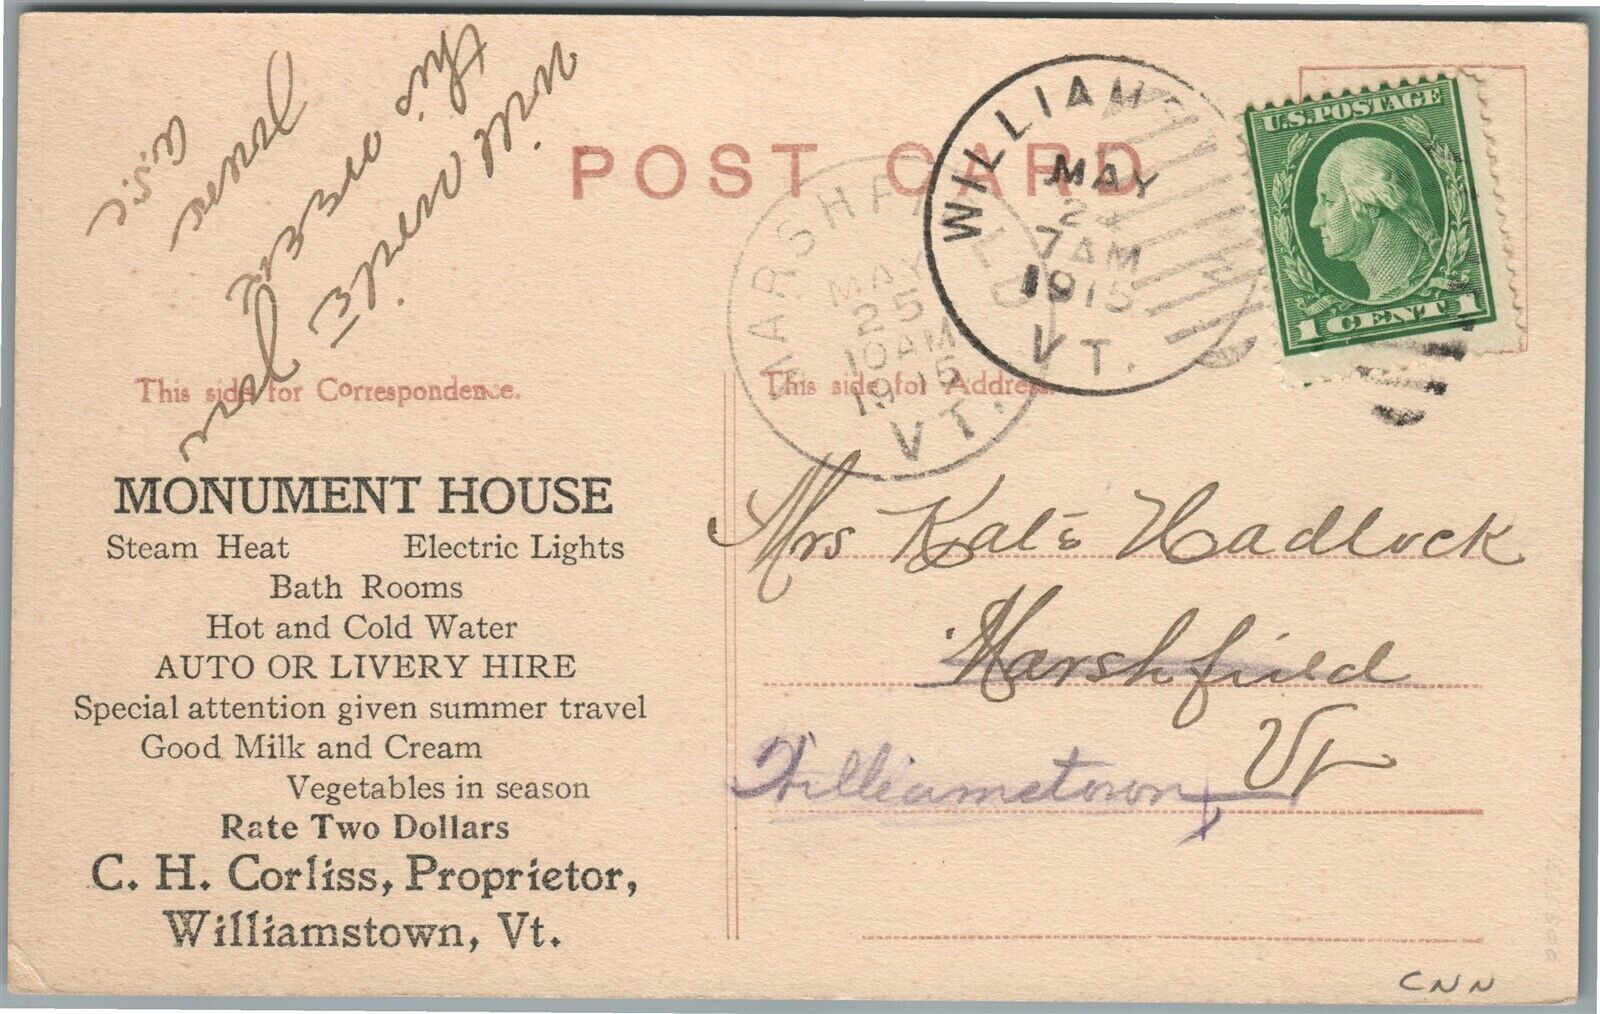 POST CARD
WILLIAMS
MAY
7 AM
1915
VT.
MARSHFIELD
MAY
25
10 AM
1915
VT.
U.S. POSTAGE
1 CENT 1
This side for Correspondence.
This side for Address.
MONUMENT HOUSE
Steam Heat Electric Lights
Bath Rooms
Hot and Cold Water
AUTO OR LIVERY HIRE
Special attention given summer travel
Good Milk and Cream
Vegetables in season
Rate Two Dollars
C. H. Corliss, Proprietor,
Williamstown, Vt.
Mrs Kate Hadlock
Marshfield
Vt
Williamstown
CNN